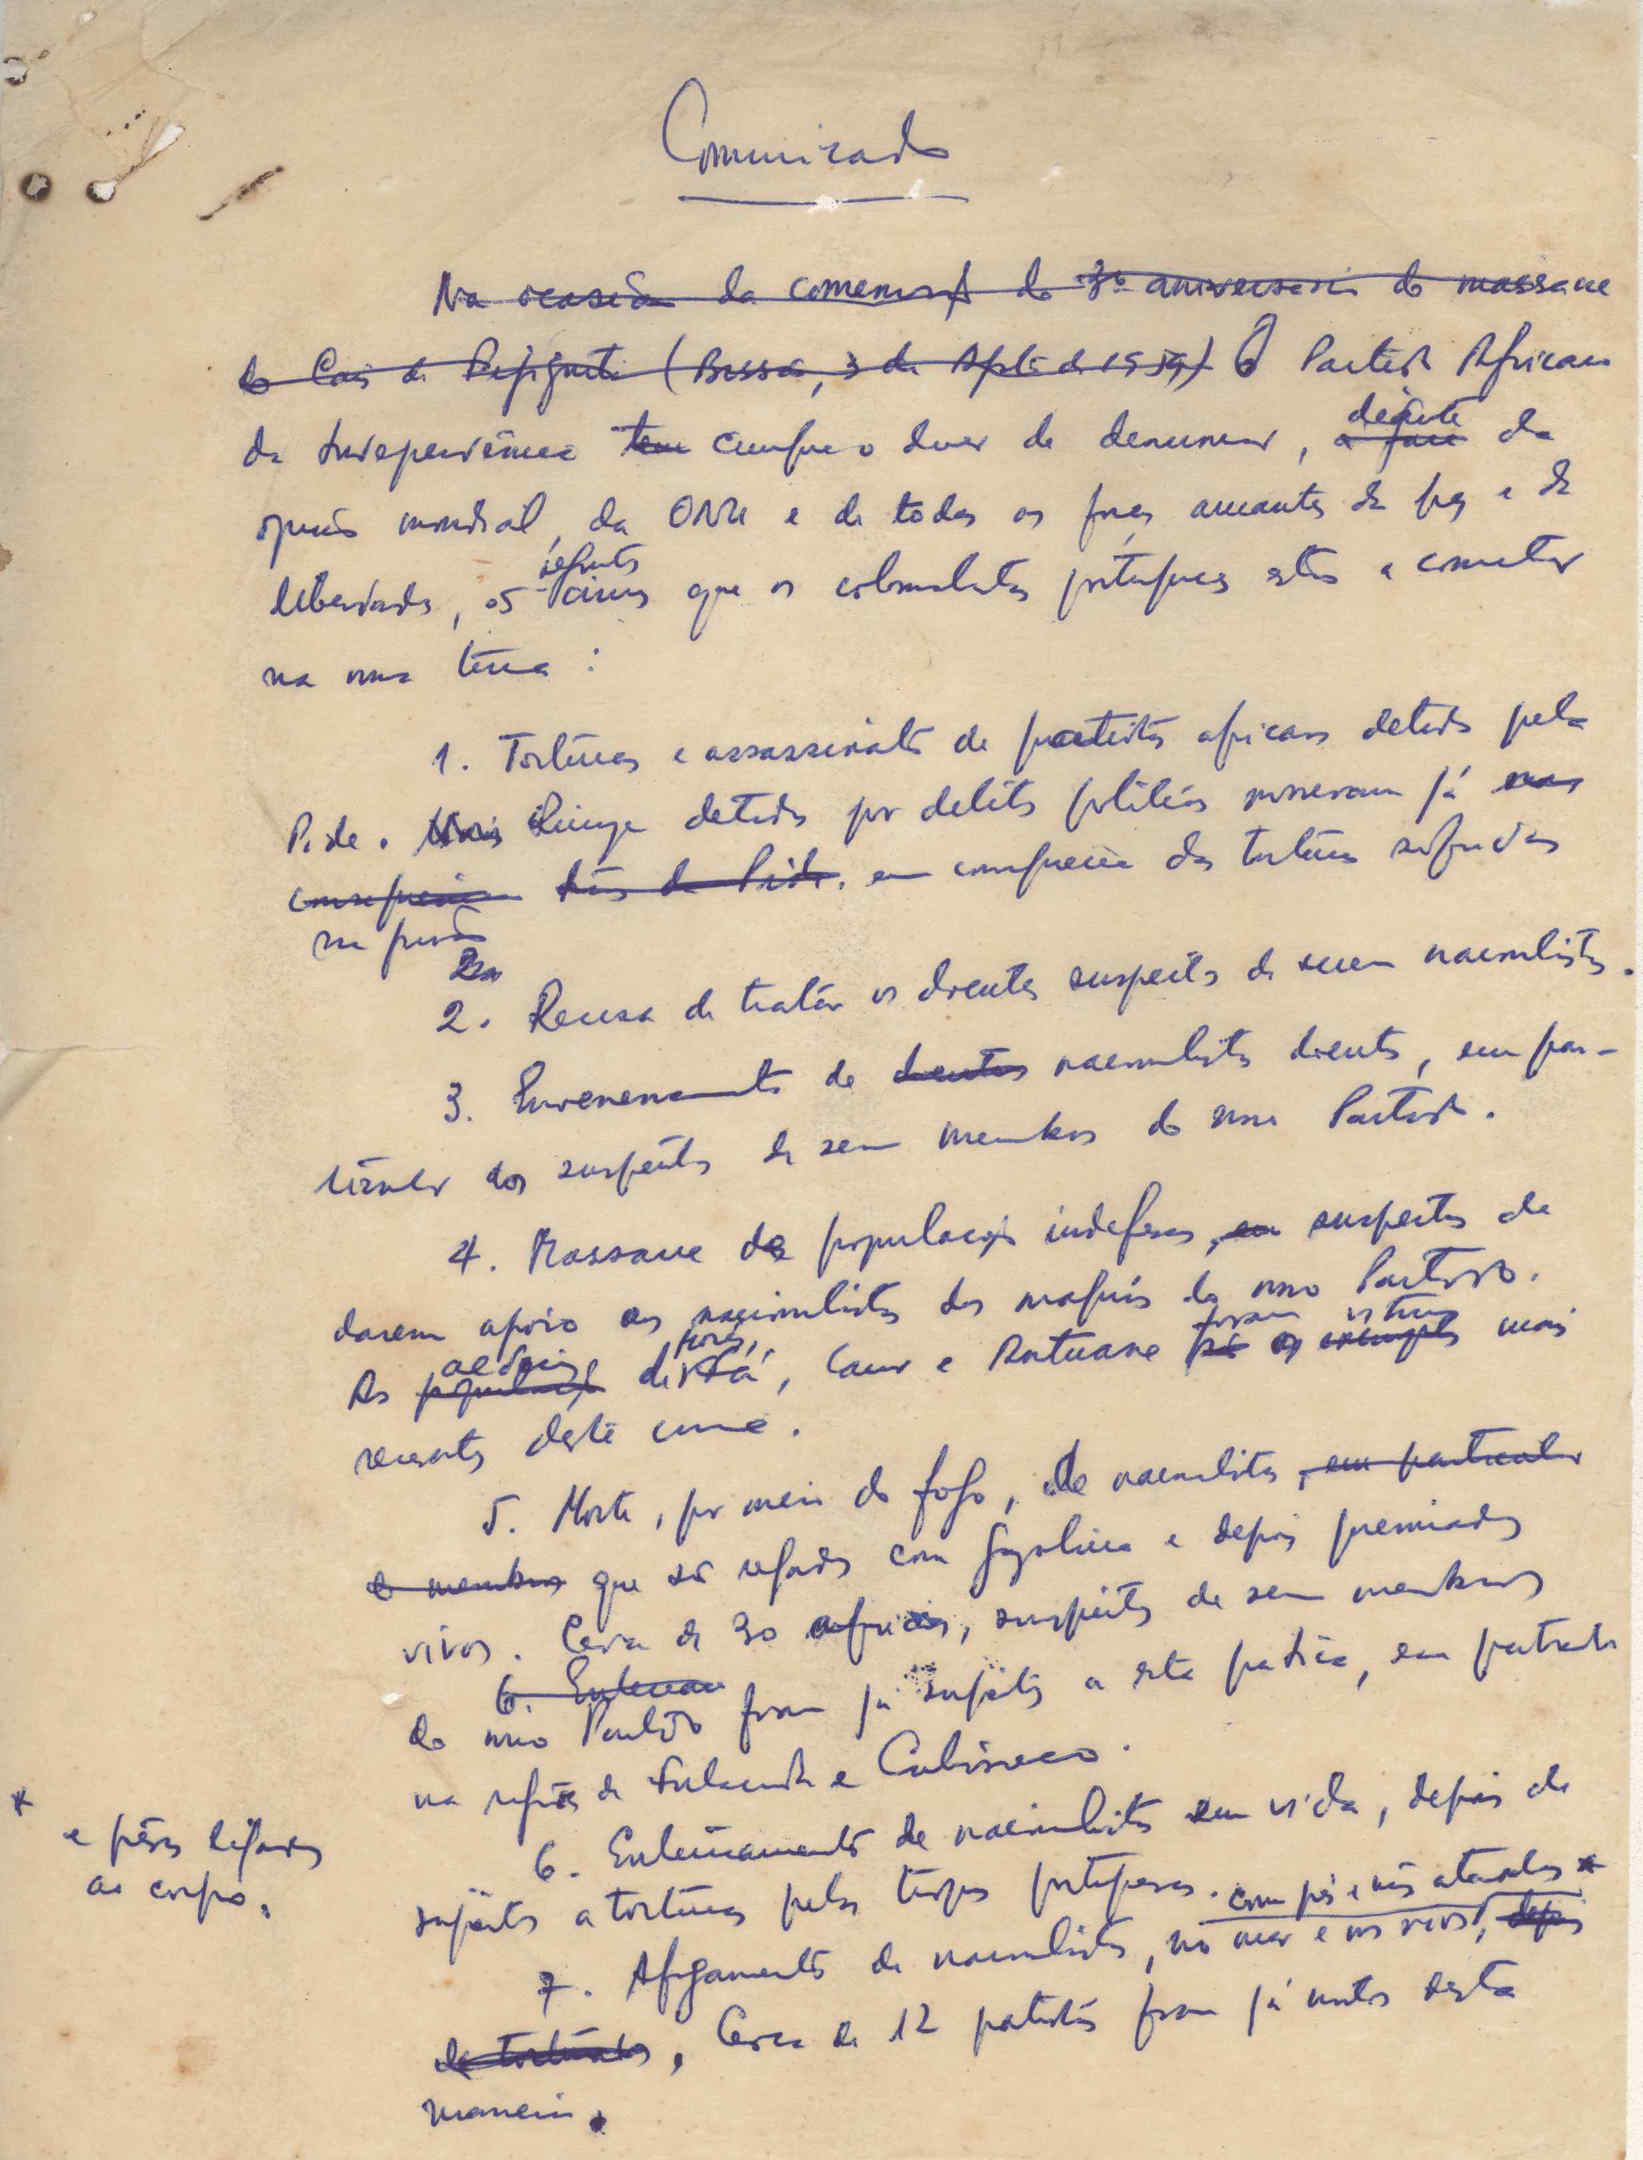 Comunicado
Na ocasião da comemoração do 3º aniversario do massacre
do Cais de Pijiguiti (Bissau, 3 de Agosto de 1959) O Partido Africano
da Independência tem cumpre o dever de denunciar, diante a face da
opinião mundial, da ONU e de todas as forças amantes da paz e da
liberdade, os seguintes crimes que os colonialistas portugueses estão a cometer
na nossa terra :
1. Torturas e assassinatos de patriotas africanos detidos pela
Pide. detidos por delitos políticos morreram já
consequência da Pide. em consequência das torturas sofridas
na prisão
2. Recusa de tratar os doentes suspeitos de serem nacionalistas.
3. Envenenamento de doentes nacionalistas doentes, em par-
ticular dos suspeitos de serem membros do nosso Partido.
4. Massacre das populações indefesas, suspeitas de
darem apoio aos nacionalistas das do nosso Partido.
As populações aldeias de , Caur e Antuane são os exemplos foram vítimas mais
recentes deste crime.
5. Morte, por meio do fogo, de nacionalistas, em particular
de membros que são regados com gasolina e depois queimados
vivos. Cerca de 30 africanos, suspeitos de serem membros
6. Enterram
do nosso Partido foram já sujeitos a esta prática, em particular
na região de Fulacunda e Cubisseco.
6. Enterramento de nacionalistas em vida, depois de
sujeitos a torturas pelas tropas portuguesas.
7. Afogamento de nacionalistas, no mar e nos rios, com pés e mãos atados * depois
de torturados, Cerca de 12 patriotas foram já mortos desta
maneira.
* e pesos ligados
ao corpo.